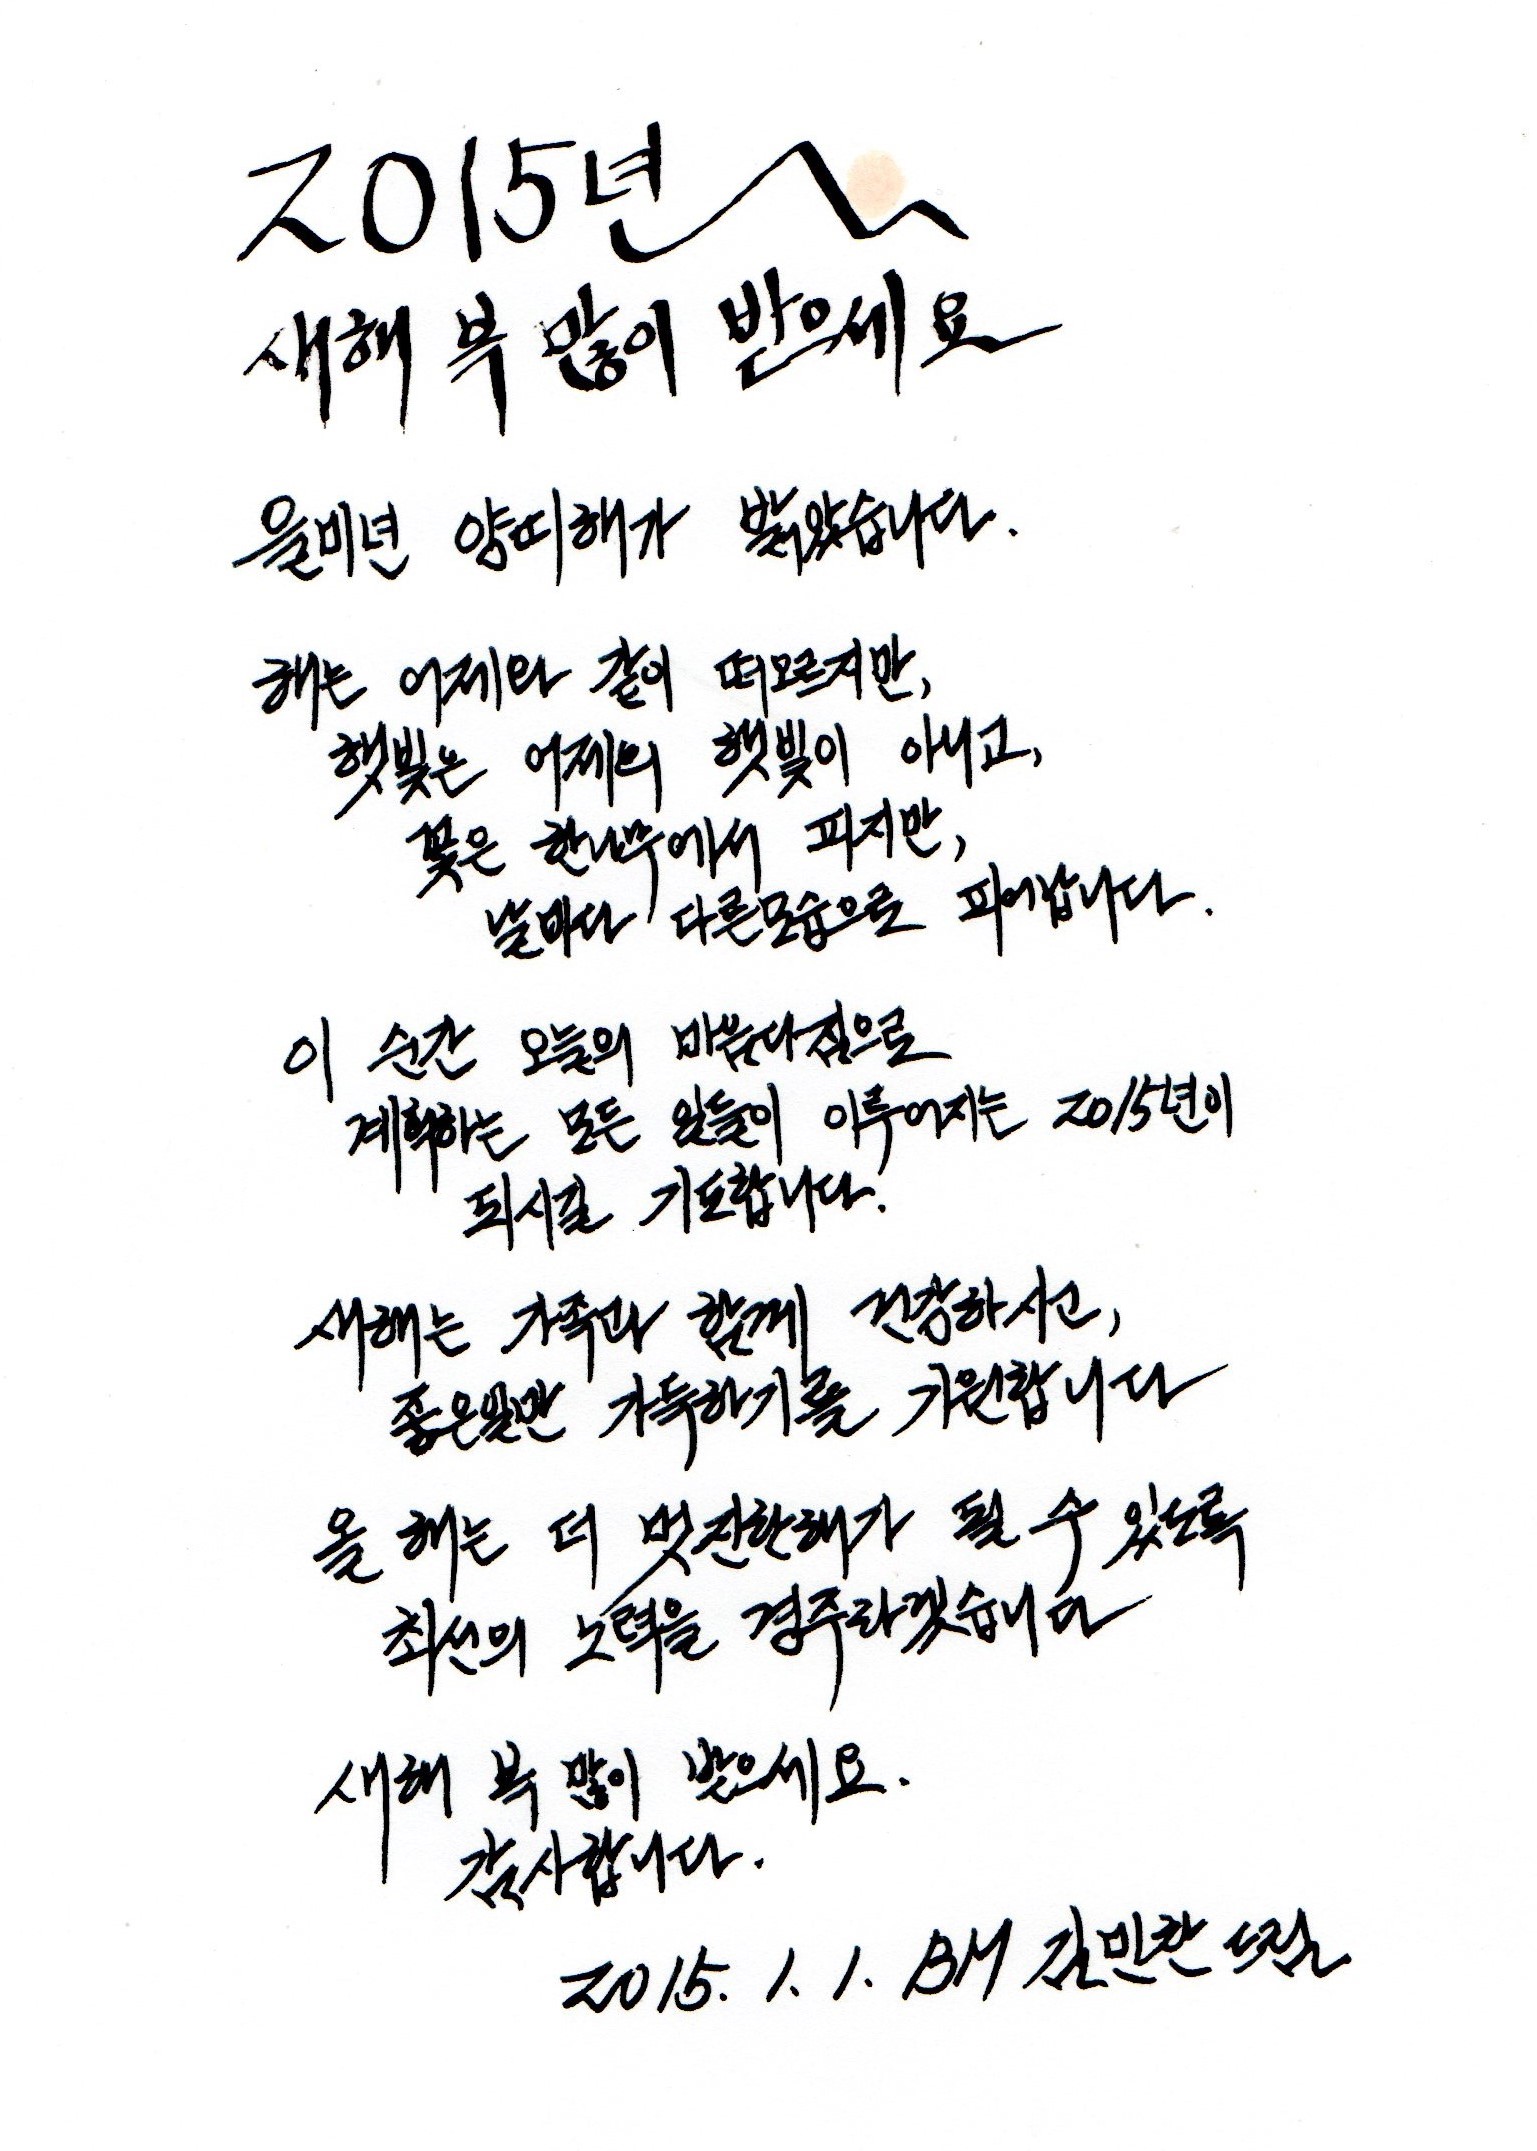 2015년
새해 복 많이 받으세요
을미년 양띠해가 밝았습니다.
해는 어제와 같이 떠오르지만,
햇빛은 어제의 햇빛이 아니고,
꽃은 한나무에서 피지만,
날마다 다른모습으로 피어납니다.
이 순간 오늘의 마음다짐으로
계획하는 모든 일들이 이루어지는 2015년이
되시길 기도합니다.
새해는 가족과 함께 건강하시고,
좋은일만 가득하기를 기원합니다
올 해는 더 멋진한해가 될 수 있도록
최선의 노력을 경주하겠습니다
새해 복 많이 받으세요.
감사합니다.
2015. 1. 1. BM 김민찬 드림